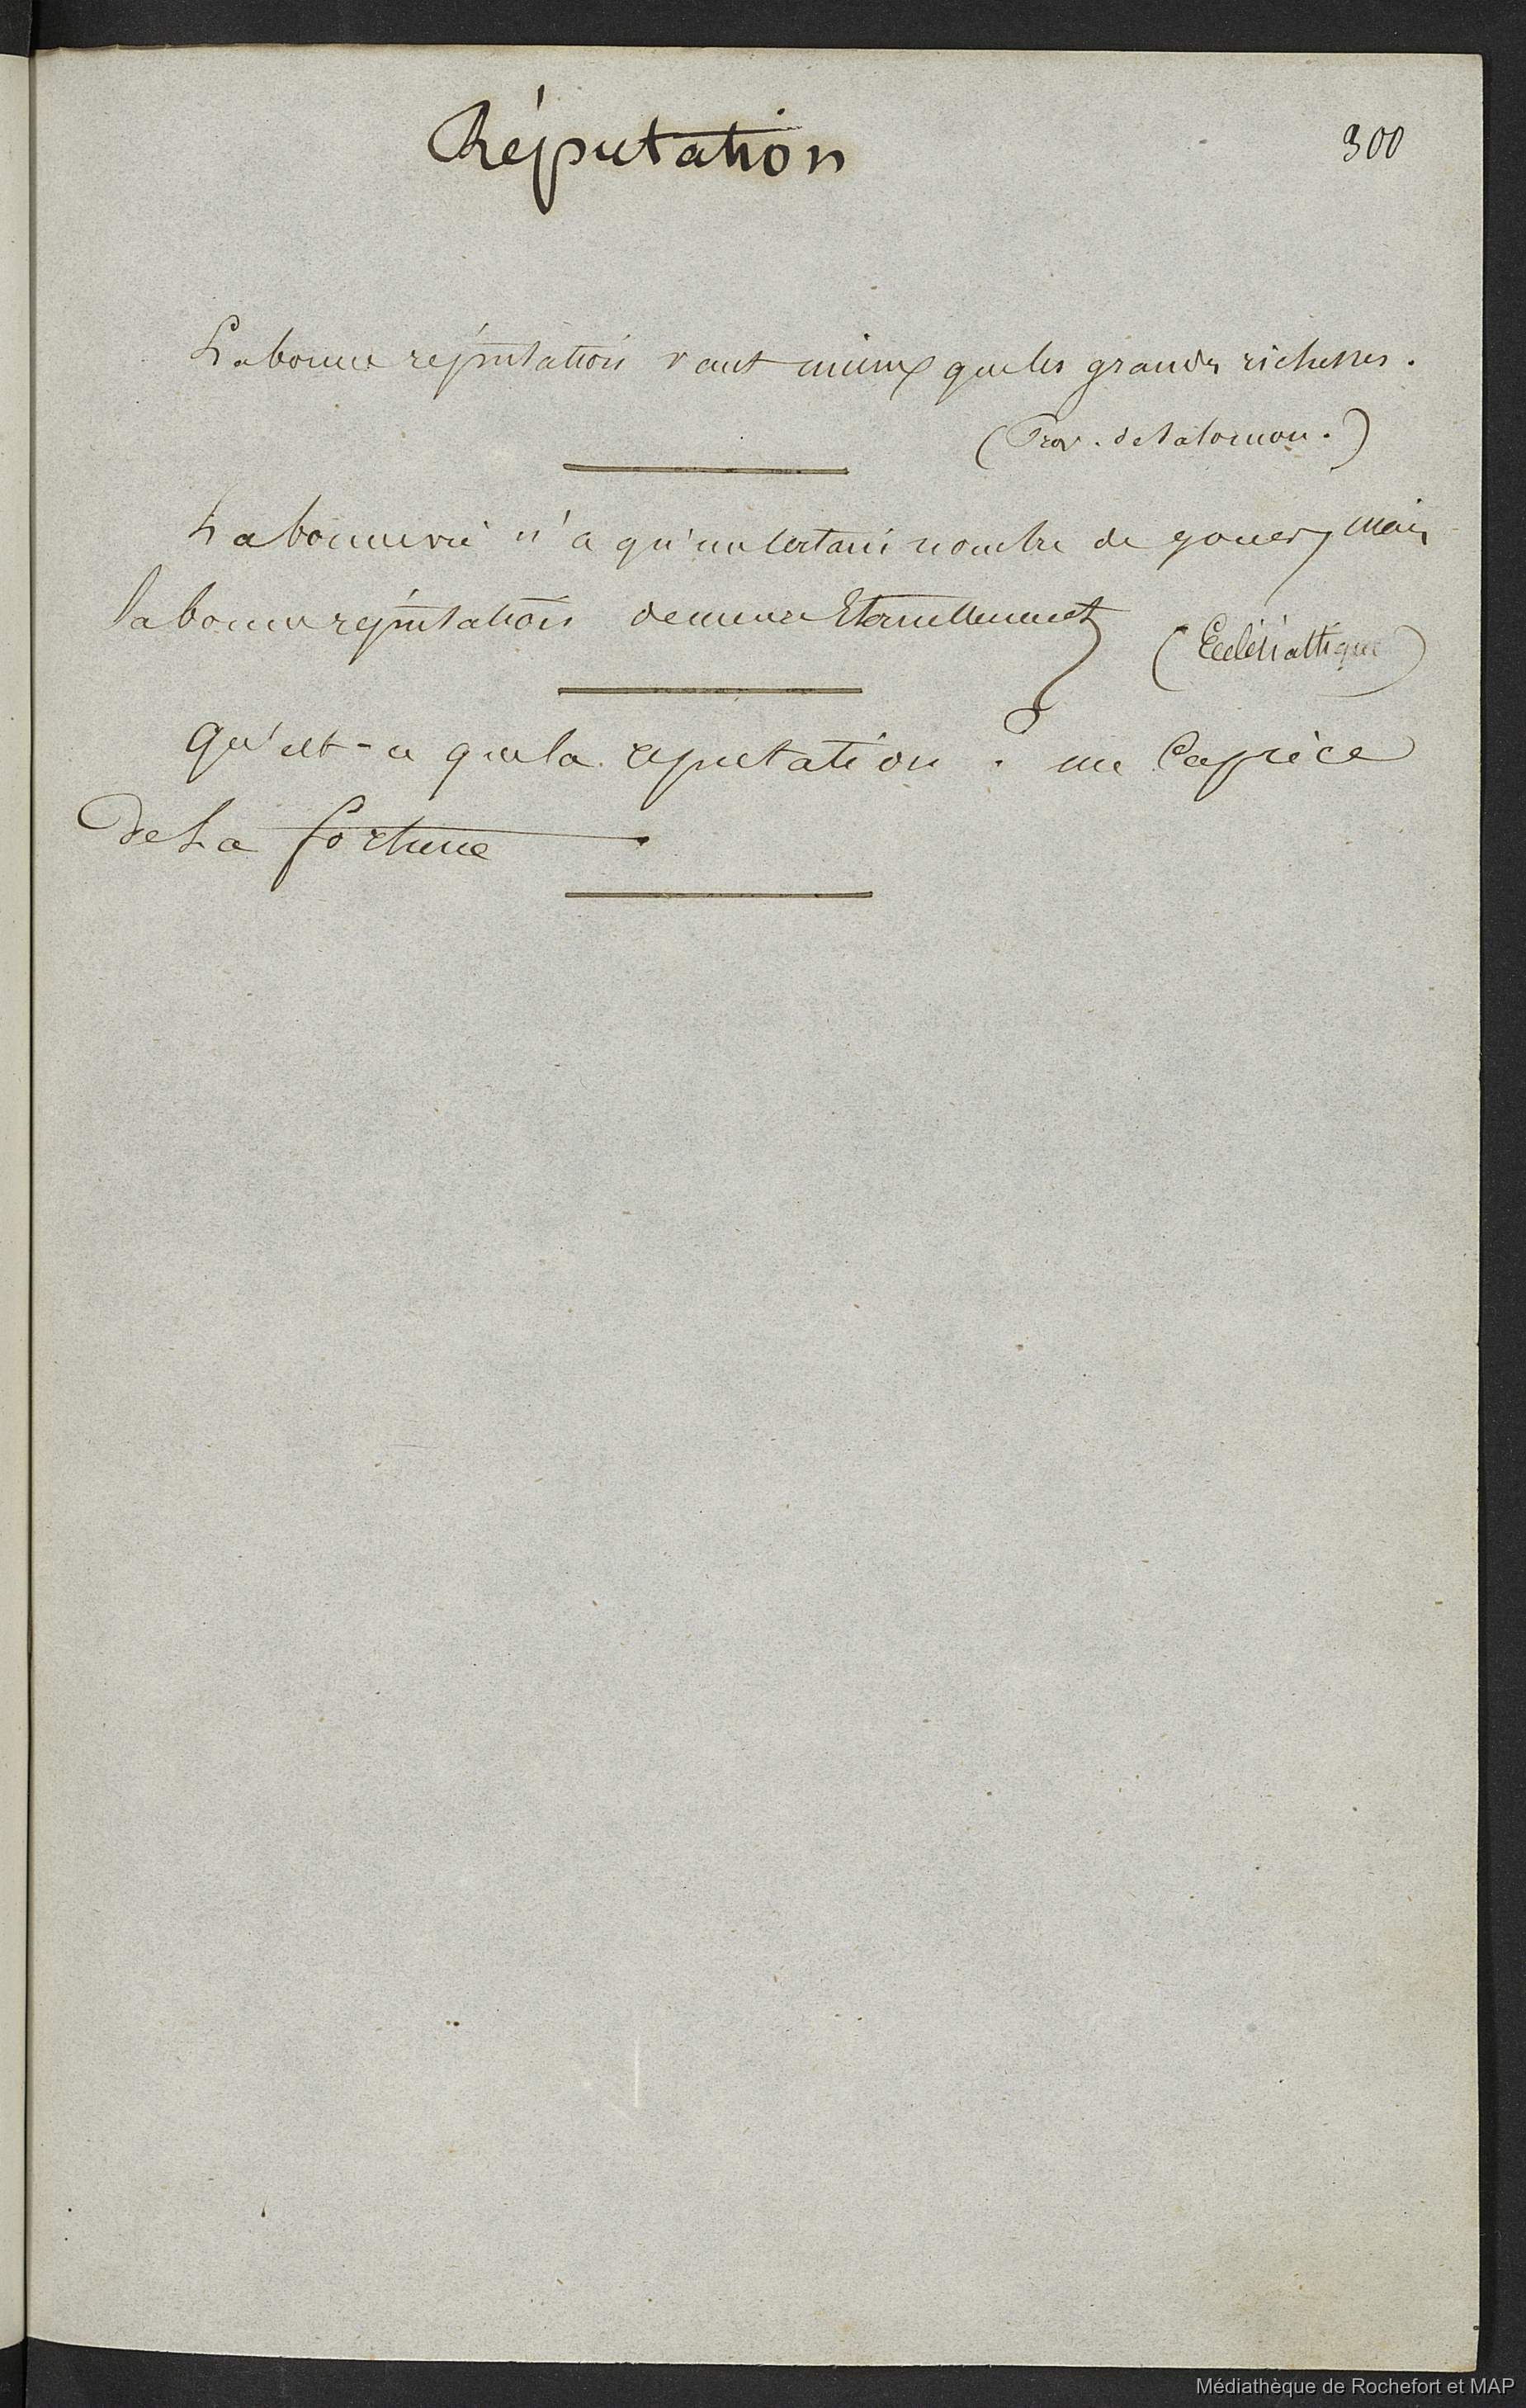 Réputation
300
La bonne réputation vaut mieux que les grandes richesses.
(Prov. de Salomon.)
La bonne vie n'a qu'un certain nombre de jours, mais
la bonne réputation demeure Eternellement
(Ecclésiastique)
Qu'est-ce que la réputation. un Caprice
De La fortune
Médiathèque de Rochefort et MAP